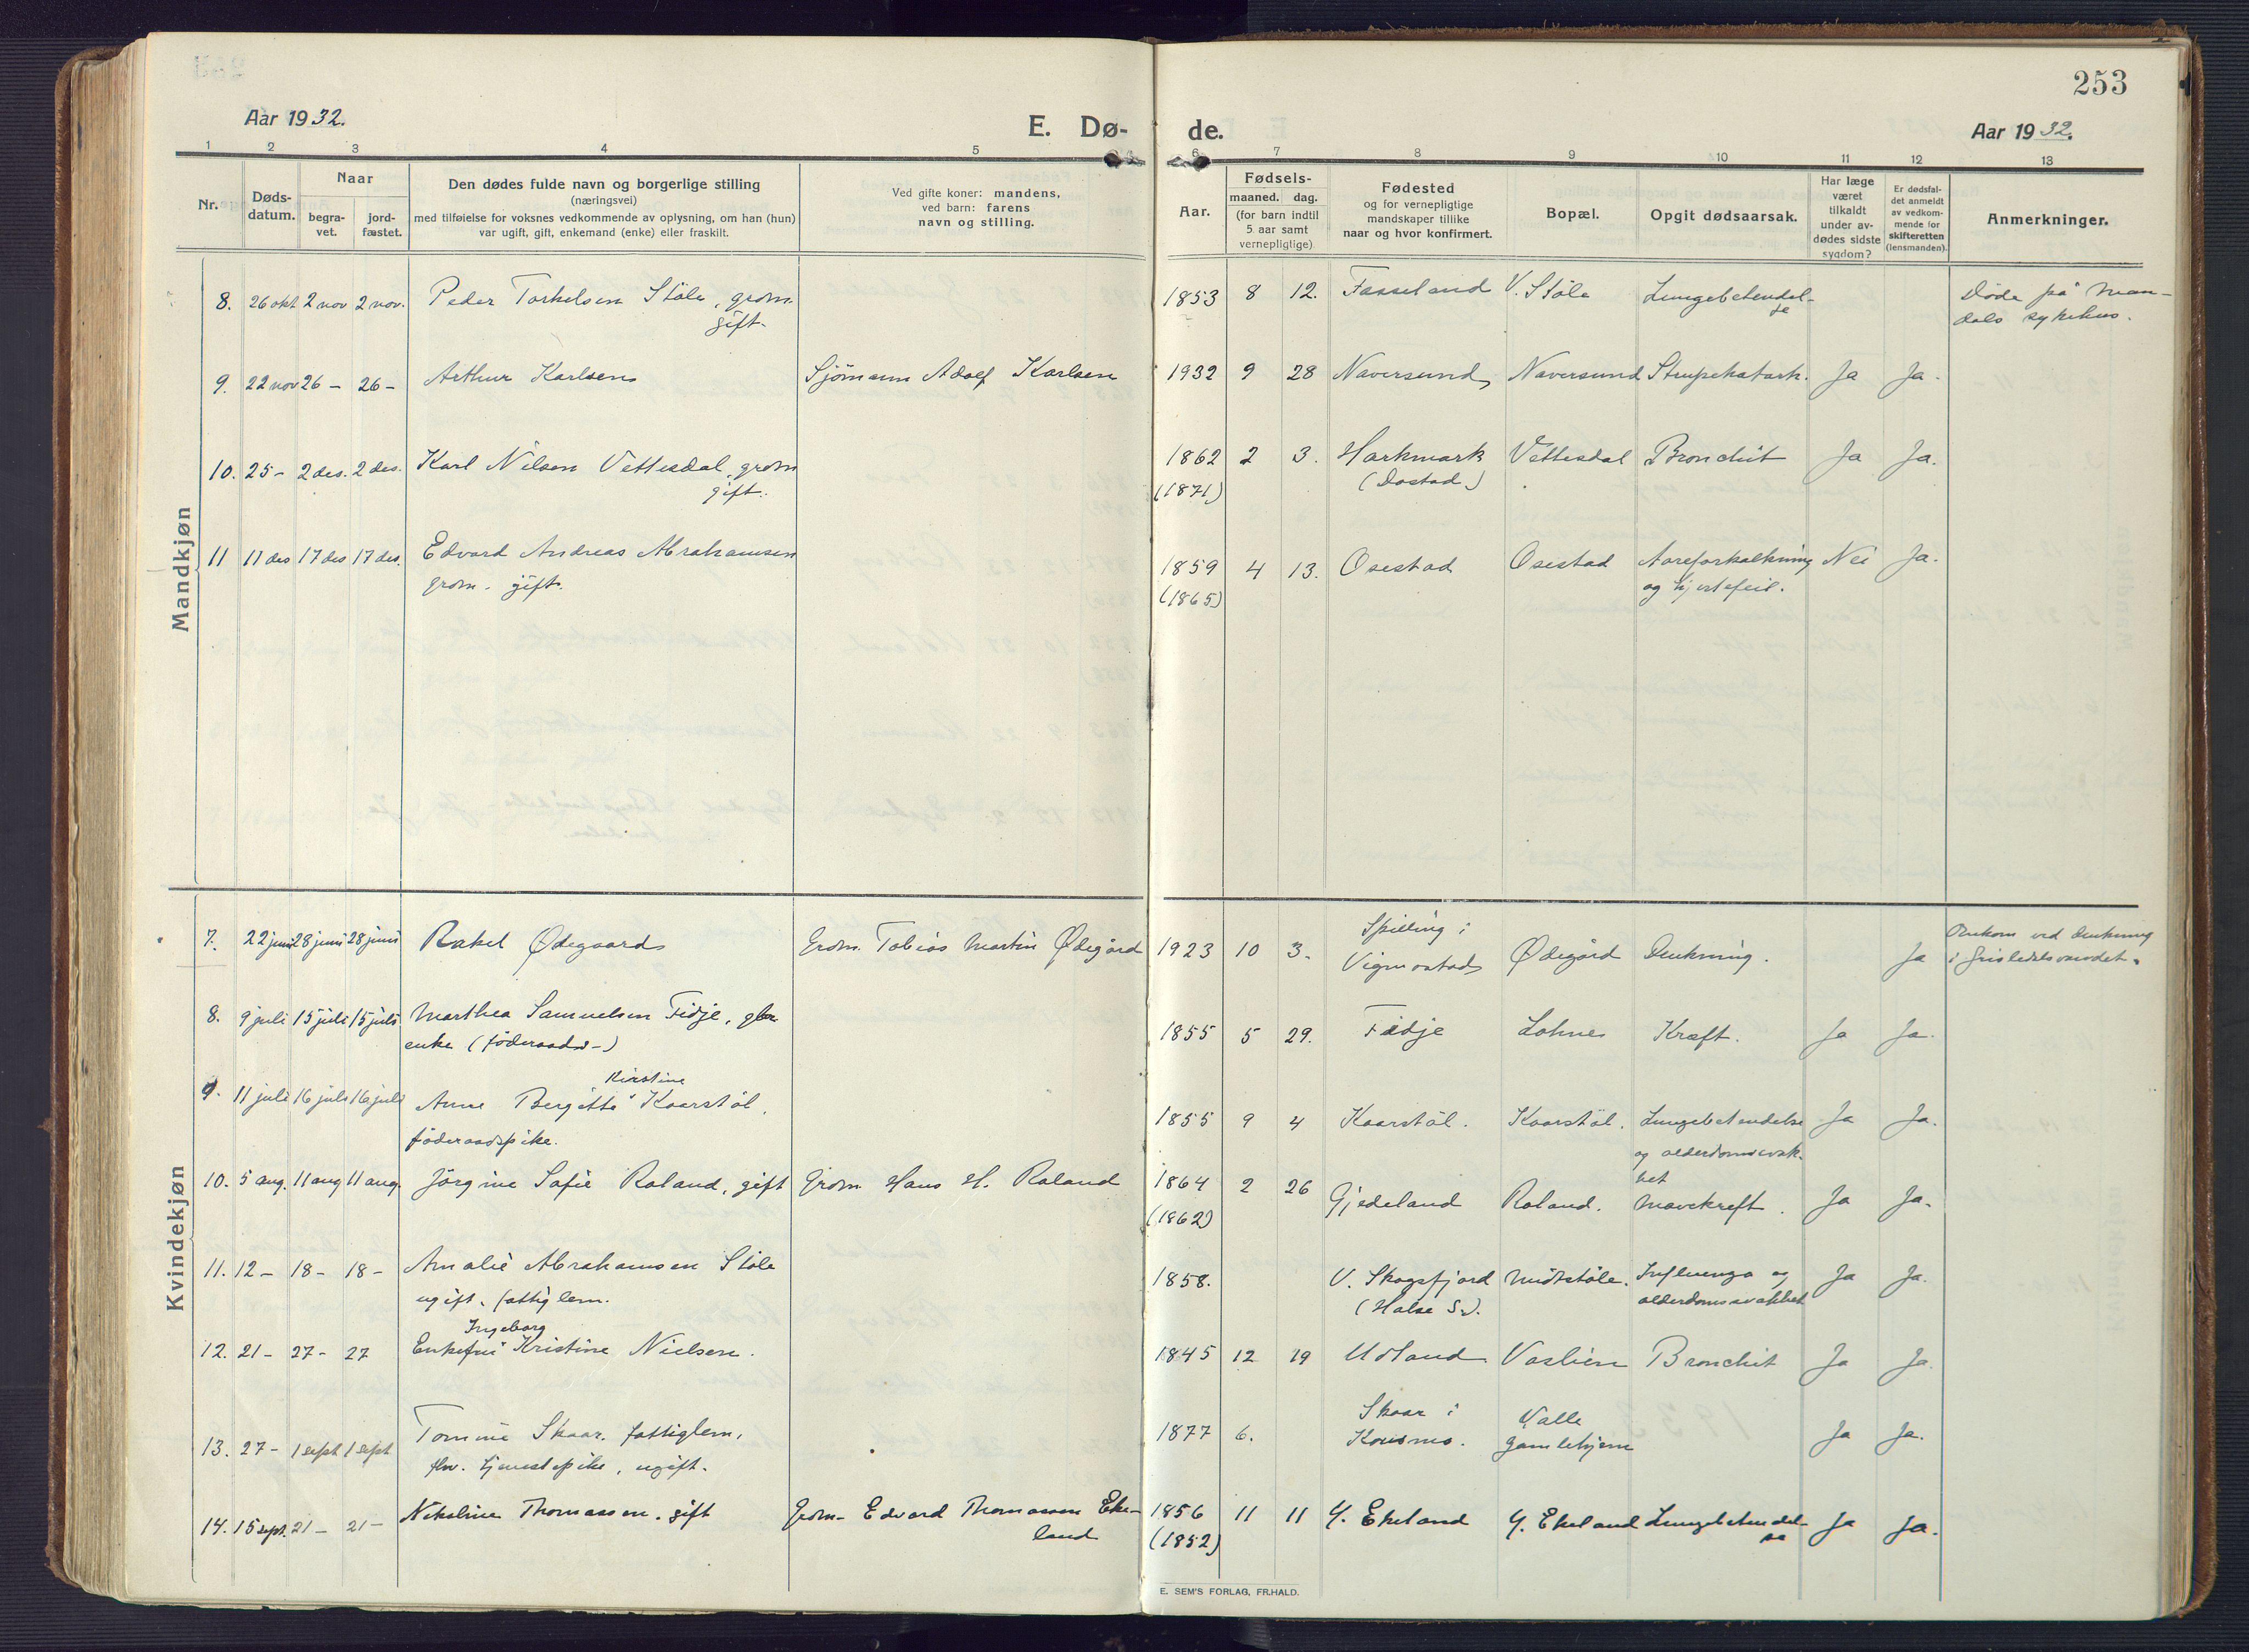 253
Aar 1932.
E. Dø-
de.
Aar 1932.
1 2 3 4 5 6 7 8 9 10 11 12 13
Nr.
Døds-
datum.
Naar
begra-
vet.
jord-
fæstet.
Den dødes fulde navn og borgerlige stilling
(næringsvei)
med tilføielse for voksnes vedkommende av oplysning, om han (hun)
var ugift, gift, enkemand (enke) eller fraskilt.
Ved gifte koner: mandens,
ved barn: farens
navn og stilling.
Aar.
Fødsels-
maaned. dag.
(for barn indtil
5 aar samt
vernepligtige)
Fødested
og for vernepligtige
mandskaper tillike
naar og hvor konfirmert.
Bopæl.
Opgit dødsaarsak.
Har læge
været
tilkaldt
under av-
dødes sidste
sygdom?
Er dødsfal-
det anmeldt
av vedkom-
mende for
skifteretten
(lensmanden).
Anmerkninger.
Mandkjøn
8. 26 okt 2 nov 2 nov. Peder Torkelsen Støle, grdm. 1853 8 12. Fasseland V. Støle Lungebetendel- Døde på Man-
gift. se dals sykehus.
9. 22 nov 26 - 26 - Arthur Karlsen Sjømann Adolf Karlsen 1932 9 28 Naversund Naversund Strupekatarh. Ja Ja.
10. 25 - 2 des. 2 des. Karl Nilsen Vettesdal, grdm 1862 2 3. Harkmark Vettesdal Bronchit Ja Ja.
gift. (1871) (Dastad)
11 11 des 17 des 17 des. Edvard Andreas Abrahamsen 1859 4 13. Osestad Osestad Aareforkalkning Nei Ja.
grdm. gift. (1865) og hjertefeil.
Kvindekjøn
7. 22 juni 28 juni 28 juni Rakel Ødegaard Grdm. Tobias Martin Ødegård 1923 10 3. Spilling i Vigmostad Ødegård Drukning. Ja Omkom ved drukning
i
8. 9 juli 15 juli 15 juli Marthea Samuelsen Fidje, 1855 5 29. Fidje Lohne Kræft. Ja Ja.
enke (föderaads-)
Kirstine
9. 11 juli 16 juli 16 juli Anne Bergitte Kaarstøl, 1855 9 4 Kaarstøl. Kaarstøl. Lungebetendelse Ja Ja.
föderaadspike. og alderdomssvak-
het
10. 5 aug. 11 aug 11 aug. Jörgine Sofie Roland, gift Grdm. Hans H. Roland 1864 2 26 Gjedeland Roland. Mavekreft. Ja Ja.
(1862)
11. 12 - 18 - 18 - Amalie Abrahamsen Støle 1858. V. Skogsfjord Midtstøle. Influenza og Ja Ja.
ugift. fattiglem. (Halse S.). alderdomssvakhet
Ingeborg
12. 21 - 27 - 27 Enkefru Kristine Nielsen. 1845 12 19 Udland Vaslien Bronchit Ja Ja.
13. 27 - 1 sept 1 sept Tomine Skaar. fattiglem, 1877 6. Skaar i Valle Ja Ja.
fhv. tjenestepike, ugift. Konsmo. gamlehjem
14. 15 sept. 21 - 21 - Nikoline Thomassen. gift Grdm. Edvard Thomassen Eke- 1856 11 11 Y. Ekeland Y. Ekeland Lungebetendel- Ja Ja.
land (1852) se
E. SEM'S FORLAG, FR.HALD.